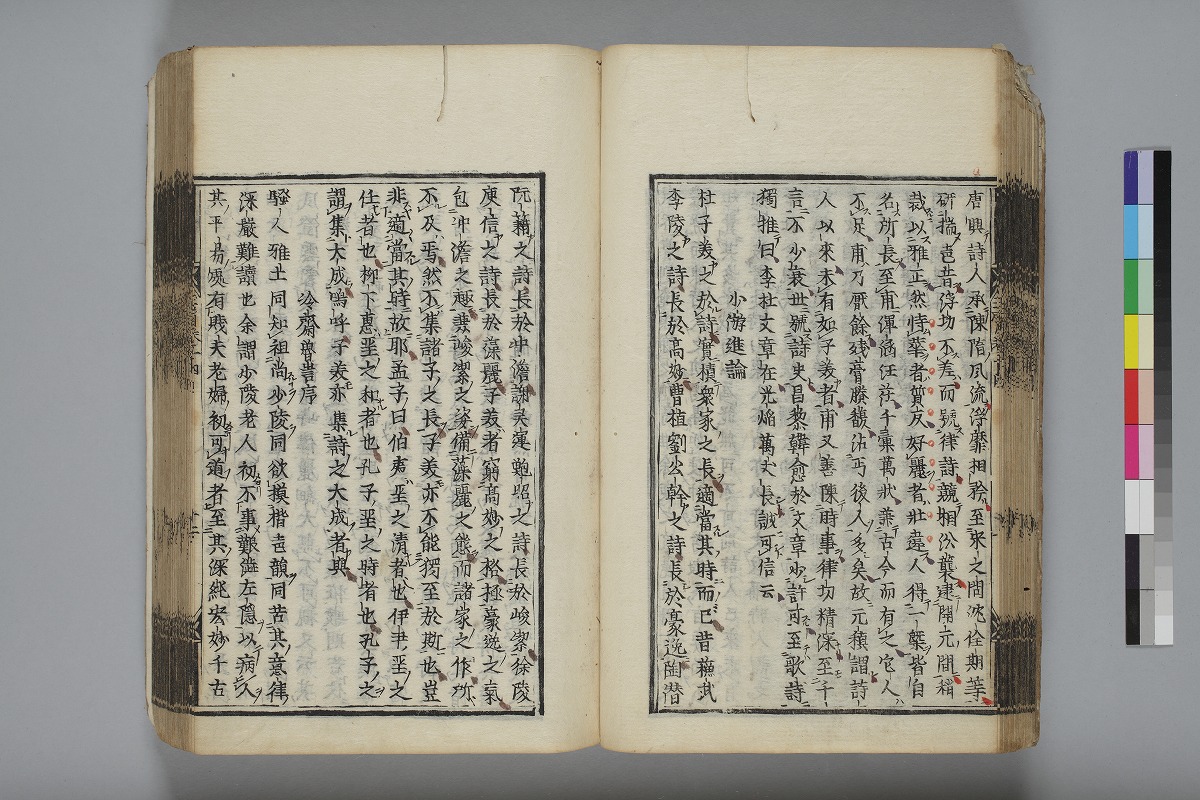 唐興詩人承陳隋風流浮靡相矜至宋之問沈佺期等
研揣聲音浮切不差而號律詩競相沿襲逮開元間稍
裁以雅正然恃華者質反好麗者壯違人得一槩皆自
名所長至甫渾涵汪茫千彙萬狀兼古今而有之它人
不足甫乃厭餘殘膏賸馥沾丐後人多矣故元稹謂詩
人以來未有如子美者甫又善陳時事律切精深至千
言不少衰世號詩史昌黎韓愈於文章少許可至歌詩
獨推曰李杜文章在光焰萬丈長誠可信云
小游進論
杜子美之於詩實積衆家之長適當其時而已昔蘓武
李陵之詩長於高妙曹植劉公幹之詩長於豪逸陶潛
阮籍之詩長於冲澹謝灵運鮑照之詩長於峻潔徐陵
庾信之詩長於藻麗子美者窮高妙之格極豪逸之氣
包冲澹之趣兼峻潔之姿備藻麗之態而諸家之作所
不及焉然不集諸子之長子美亦不能獨至於斯也豈
非適當其時故耶孟子曰伯夷聖之清者也伊尹聖之
任者也柳下惠聖之和者也孔子聖之時者也孔子之
謂集大成嗚呼子美亦集詩之大成者與
冷齋魯訔序
騷人雅士同知祖尚少陵同欲摸楷聲韻同苦其意律
深嚴難讀也余謂少陵老人初不事艱澁左隱以病人
其平易處有賤夫老婦初可道者至其深純宏妙千古